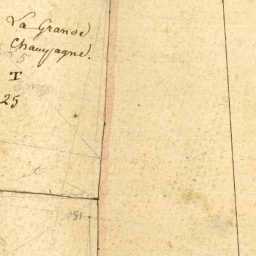 La Grande
Champagne.
T
25